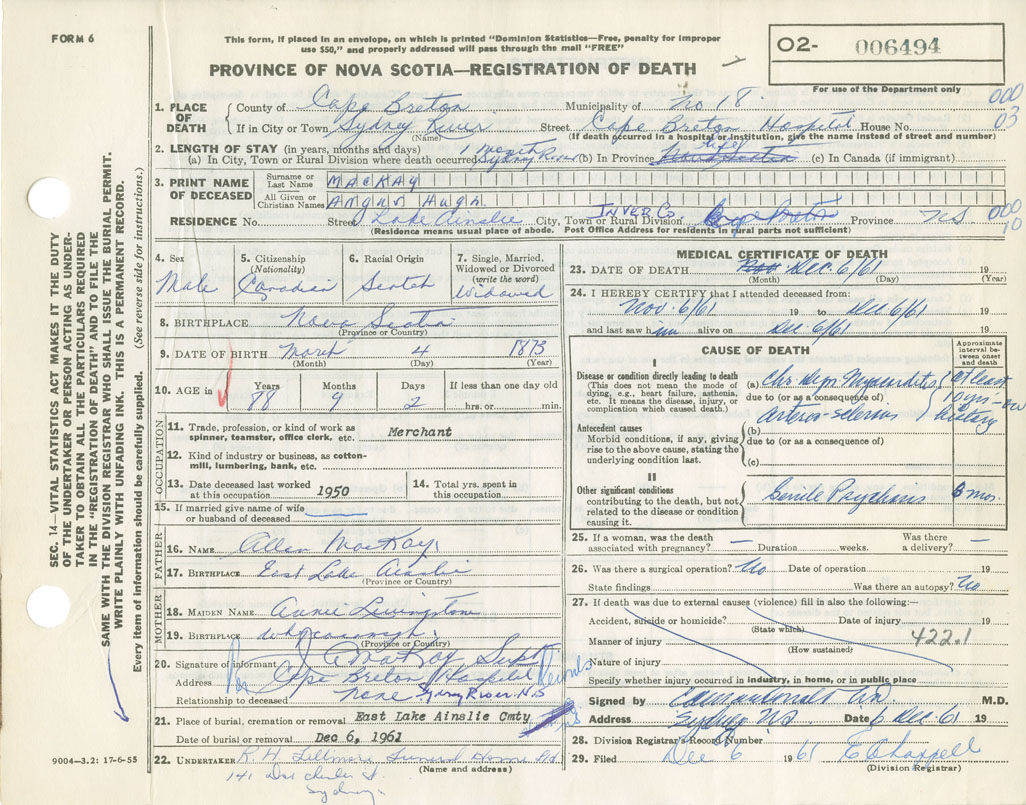 FORM 6
This form, if placed in an envelope, on which is printed "Dominion Statistics—Free, penalty for improper
use $50," and properly addressed will pass through the mail "FREE"
PROVINCE OF NOVA SCOTIA—REGISTRATION OF DEATH
O2- 006494
For use of the Department only
000
03
1. PLACE OF DEATH
County of Cape Breton Municipality of No 18.
If in City or Town Sydney River Street Cape Breton Hospital House No.
(Name) (If death occurred in a hospital or institution, give the name instead of street and number)
2. LENGTH OF STAY (in years, months and days) 1 month life
(a) In City, Town or Rural Division where death occurred Sydney River (b) In Province Nova Scotia (c) In Canada (if immigrant)
3. PRINT NAME OF DECEASED
Surname or Last Name MACKAY
All Given or Christian Names Angus Hugh
RESIDENCE No. Street Lake Ainslie City, Town or Rural Division INVER CO Cape Breton Province NS
000
10
(Residence means usual place of abode. Post Office Address for residents in rural parts not sufficient)
4. Sex Male
5. Citizenship (Nationality) Canadian
6. Racial Origin Scotch
7. Single, Married, Widowed or Divorced (write the word) Widowed
8. BIRTHPLACE Nova Scotia
(Province or Country)
9. DATE OF BIRTH March 4 1873
(Month) (Day) (Year)
10. AGE in Years 88 Months 9 Days 2 If less than one day old hrs. or min.
OCCUPATION
11. Trade, profession, or kind of work as spinner, teamster, office clerk, etc. Merchant
12. Kind of industry or business, as cotton-mill, lumbering, bank, etc.
13. Date deceased last worked at this occupation 1950
14. Total yrs. spent in this occupation
15. If married give name of wife or husband of deceased
FATHER
16. NAME Allen MacKay
17. BIRTHPLACE East Lake Ainslie
(Province or Country)
MOTHER
18. MAIDEN NAME Annie Livingstone
19. BIRTHPLACE Whycocomagh
(Province or Country)
20. Signature of informant MacKay Supt
Address Cape Breton Hospital Records
Relationship to deceased None Sydney River. N.S
21. Place of burial, cremation or removal East Lake Ainslie Cmty
Date of burial or removal Dec 6, 1961
22. UNDERTAKER R. H. Fillmore Funeral Home Ltd
(Name and address)
141 Dorchester St.
Sydney
9004—3.2: 17-6-55
MEDICAL CERTIFICATE OF DEATH
23. DATE OF DEATH Nov Dec. 6/61 19
(Month) (Day) (Year)
24. I HEREBY CERTIFY that I attended deceased from:
Nov. 6/61 19 to Dec 6/61 19
and last saw him alive on Dec. 6/61 19
CAUSE OF DEATH
Approximate interval between onset and death
I
Disease or condition directly leading to death
(This does not mean the mode of dying, e.g., heart failure, asthenia, etc. It means the disease, injury, or complication which caused death.)
(a) Chr Degn Myocarditis at least
due to (or as a consequence of) 10 yrs - on
Arterio-sclerosis history
Antecedent causes
Morbid conditions, if any, giving rise to the above cause, stating the underlying condition last.
(b)
due to (or as a consequence of)
(c)
II
Other significant conditions
contributing to the death, but not related to the disease or condition causing it.
Senile Psychosis mos.
25. If a woman, was the death associated with pregnancy? — Duration weeks. Was there a delivery? —
26. Was there a surgical operation? No Date of operation 19
State findings Was there an autopsy? No
27. If death was due to external causes (violence) fill in also the following:—
Accident, suicide or homicide? Date of injury 19
(State which)
Manner of injury 422.1
(How sustained)
Nature of injury
Specify whether injury occurred in industry, in home, or in public place
Signed by M.D.
Address Sydney NS Date 6 Dec. 61 19
28. Division Registrar's Record Number
29. Filed Dec 6 1961 E Chappell
(Division Registrar)
SEC. 14—VITAL STATISTICS ACT MAKES IT THE DUTY
OF THE UNDERTAKER OR PERSON ACTING AS UNDER-
TAKER TO OBTAIN ALL THE PARTICULARS REQUIRED
IN THE "REGISTRATION OF DEATH" AND TO FILE THE
SAME WITH THE DIVISION REGISTRAR WHO SHALL ISSUE THE BURIAL PERMIT.
WRITE PLAINLY WITH UNFADING INK. THIS IS A PERMANENT RECORD.
Every item of information should be carefully supplied. (See reverse side for instructions.)